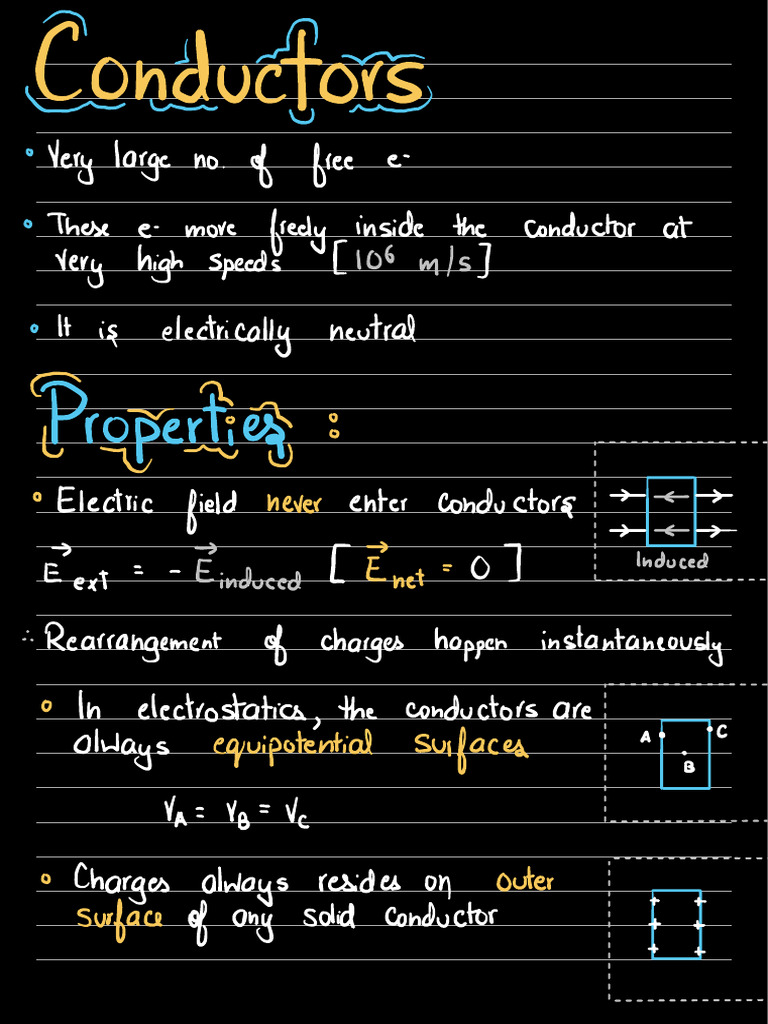 Conductors
• Very large no. of free e-
• These e- move freely inside the conductor at
very high speeds [10⁶ m/s]
• It is electrically neutral
Properties :
• Electric field never enter conductors
E⃗ext = - E⃗induced [E⃗net = 0]
Induced
∴ Rearrangement of charges happen instantaneously
• In electrostatics, the conductors are
always equipotential surfaces
A B C
VA = VB = VC
• Charges always resides on outer
surface of any solid conductor
+ +
+ +
+ +